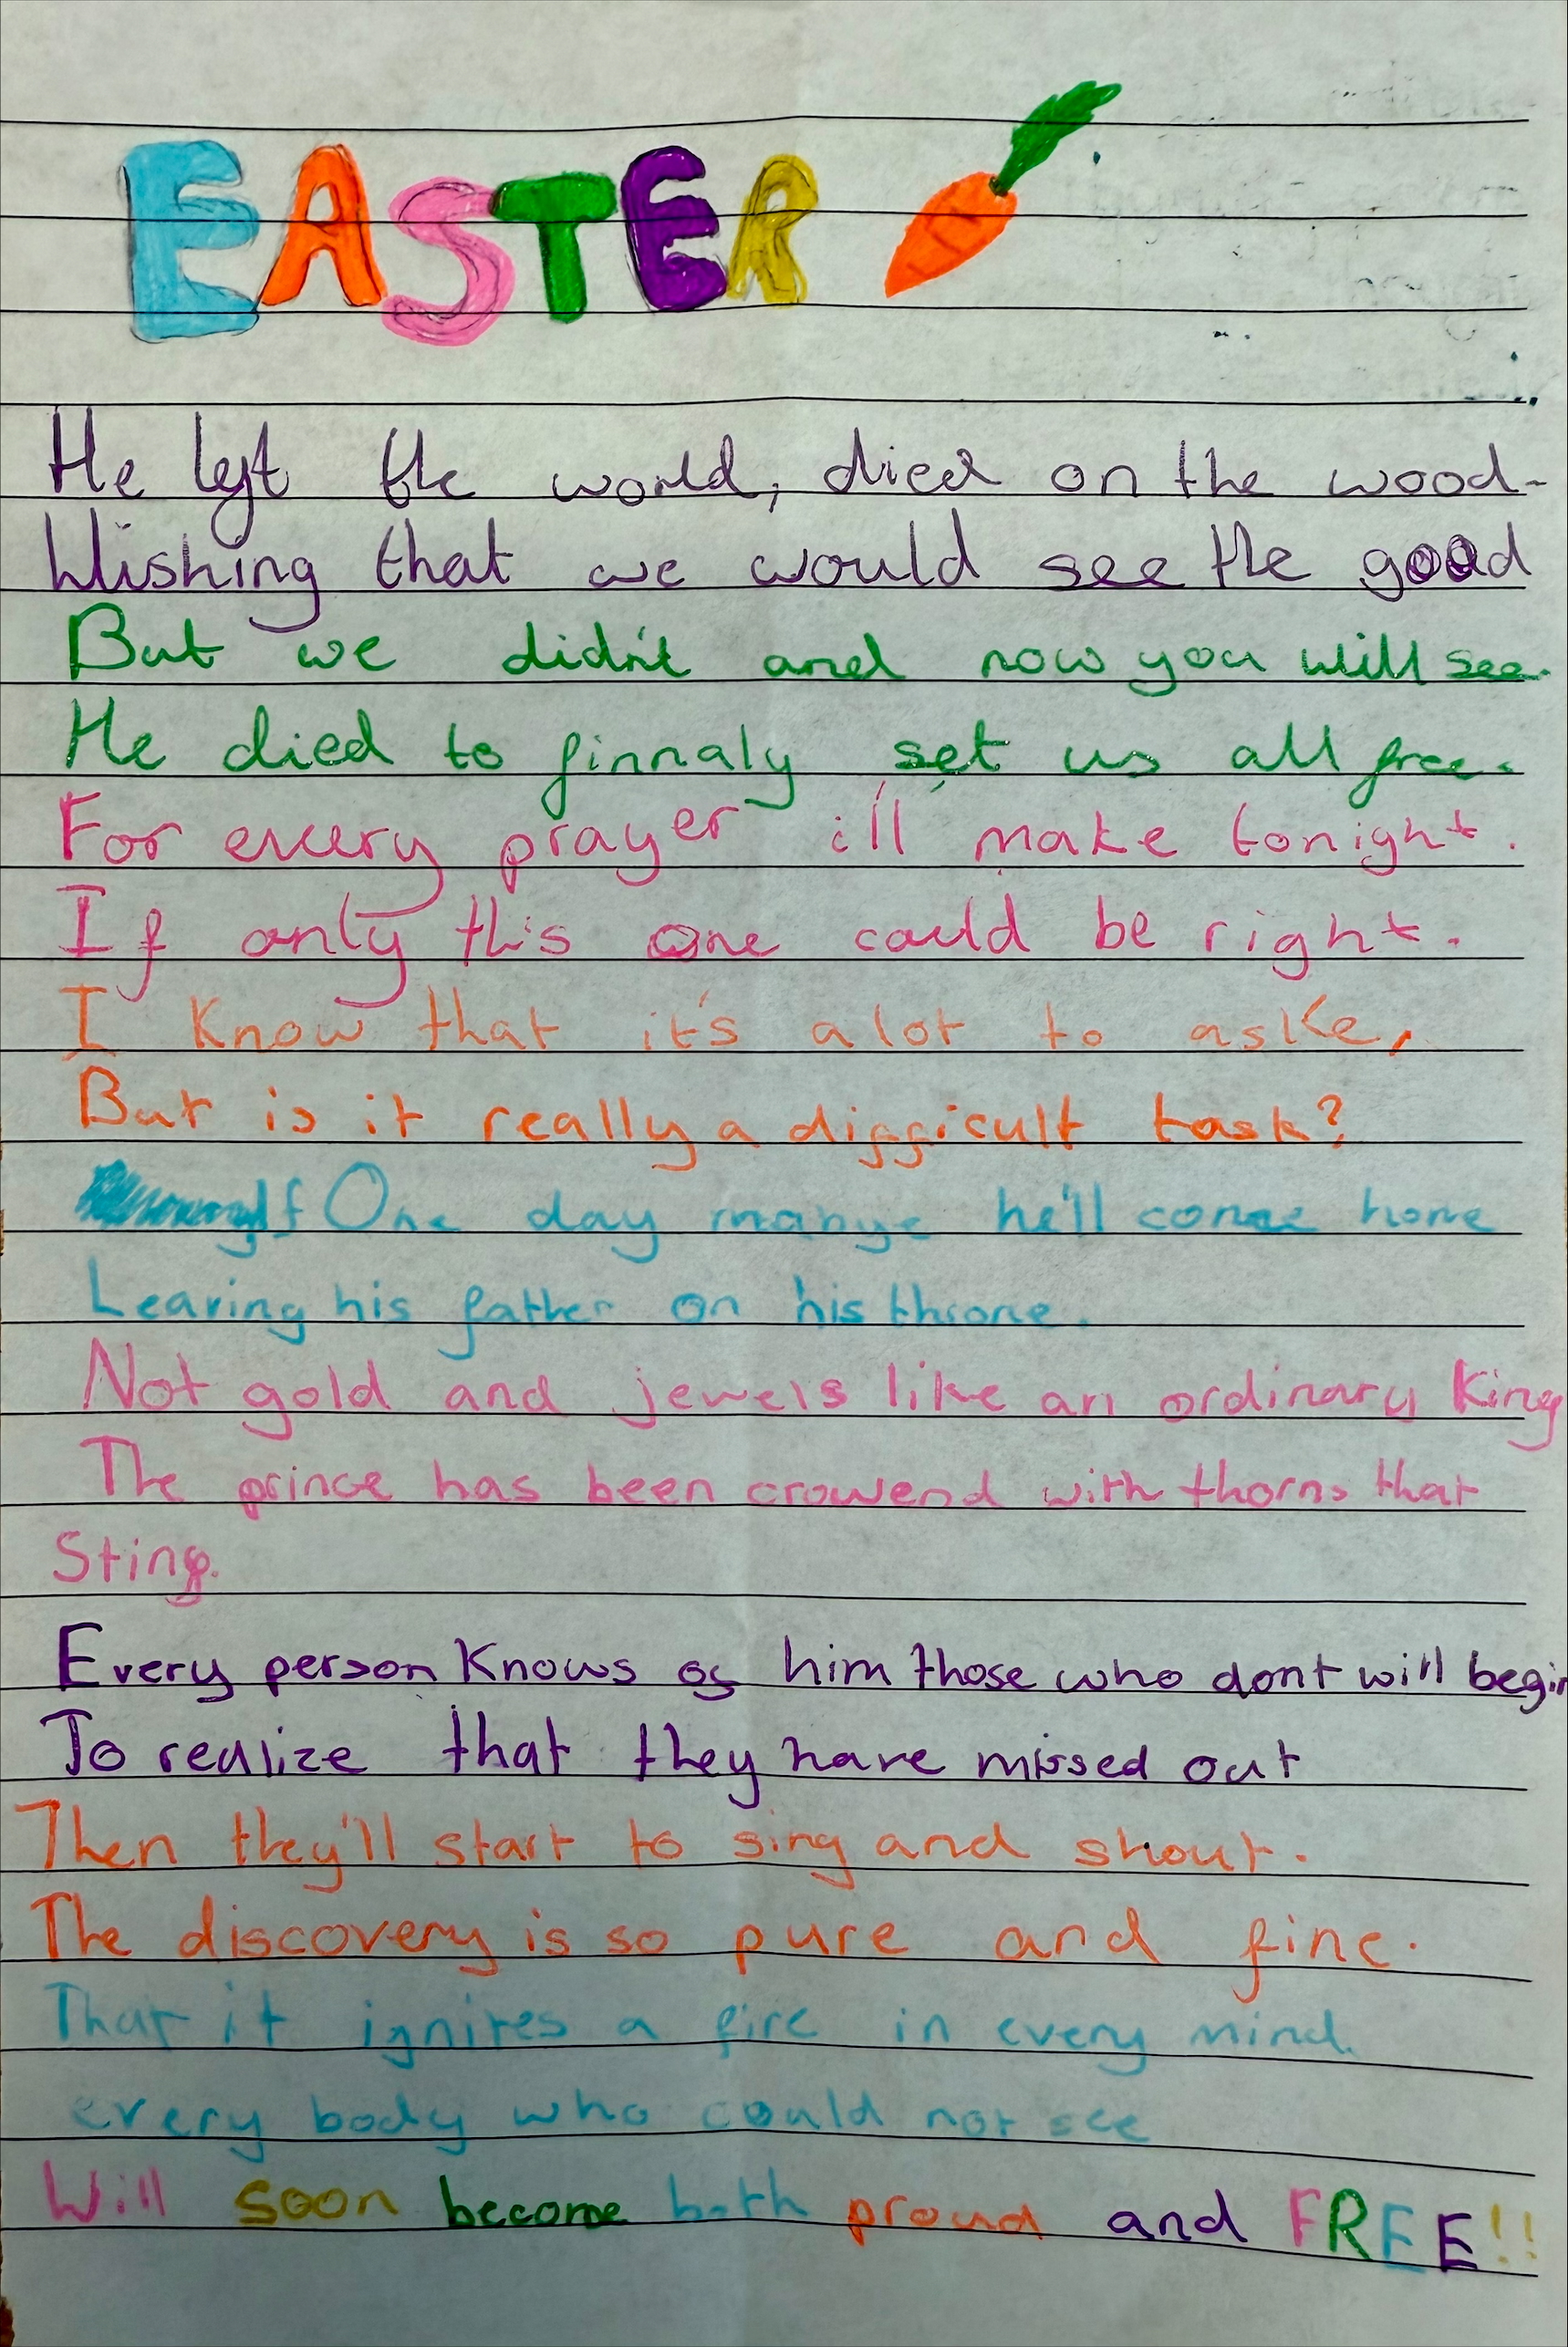 EASTER
He left the world, died on the wood-
Wishing that we would see the good
But we didn't and now you will see.
He died to finnaly set us all free.
For every prayer i'll make tonight.
If only this one could be right.
I know that it's a lot to aske,
But is it really a difficult task?
One day mabye he'll come home
Leaving his father on his throne.
Not gold and jewels like an ordinary King
The prince has been crowend with thorns that
Sting.
Every person knows of him those who dont will begin
To realize that they have missed out
Then they'll start to sing and shout.
The discovery is so pure and fine.
That it ignites a fire in every mind.
every body who could not see
Will soon become both proud and FREE!!